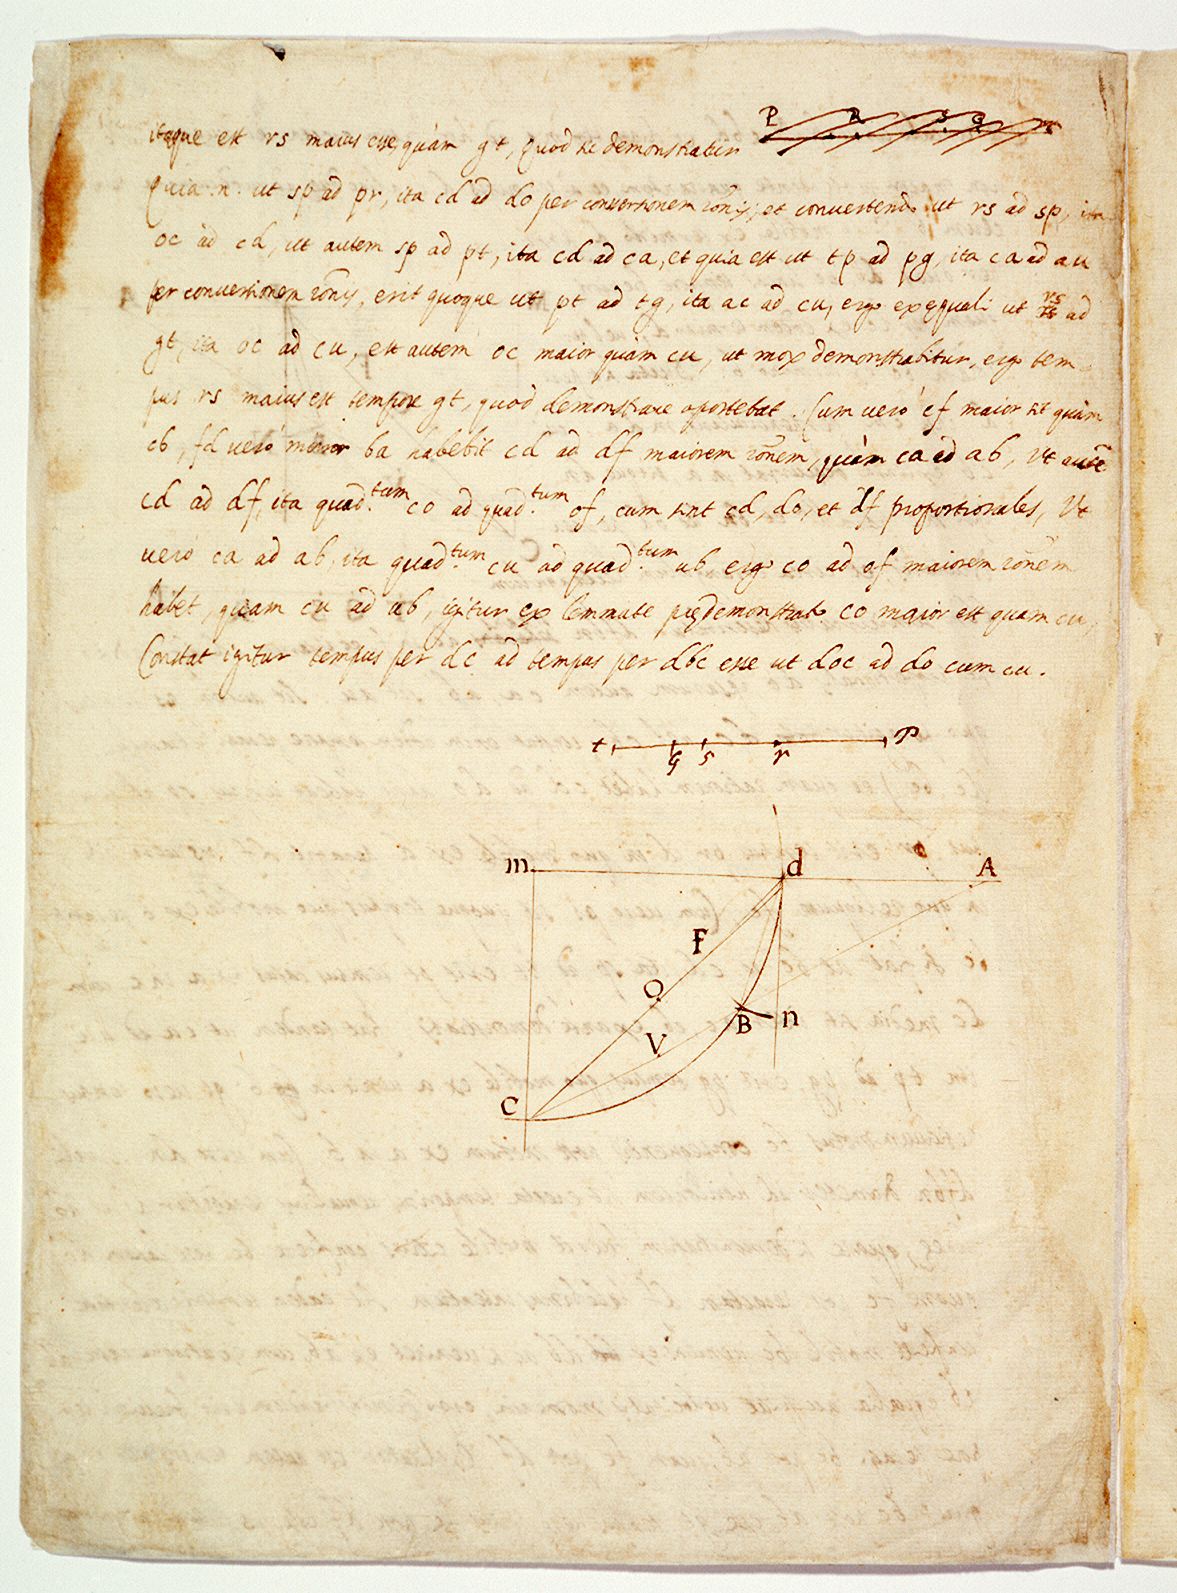 itaque est rs maius esse, quàm gt, Quod sic demonstratur
P R S G T
Quia .n. ut sp ad pr, ita cd ad do per conversionem rōnis, et convertendo ut rs ad sp, ita
oc ad cd, ut autem sp ad pt, ita cd ad ca, et quia est ut tp ad pg, ita ca ad au
per conversionem rōnis, erit quoque ut pt ad tg, ita ac ad cu, ergo ex ęquali ut rs ad
gt, ita oc ad cu, est autem oc maior quàm cu, ut mox demonstrabitur, ergo tem-
pus rs maius est tempore gt, quod demonstrare oportebat. Cum uerò cf maior sit quàm
cb, fd uerò minor ba habebit cd ad df maiorem rōnem, quàm ca ad ab, Ut autē
cd ad df, ita quad.tum co ad quad.tum of, cum sint cd, do, et df proportionales, Ut
uerò ca ad ab, ita quad.tum cu ad quad.tum ub, ergo co ad of maiorem rōnem
habet, quam cu ad ub, igitur ex lemmate prędemonstrato co maior est quam cu,
Constat igitur tempus per dc ad tempus per dbc esse ut doc ad do cum cu.
t g s r P
m d A
F
O
B n
V
C